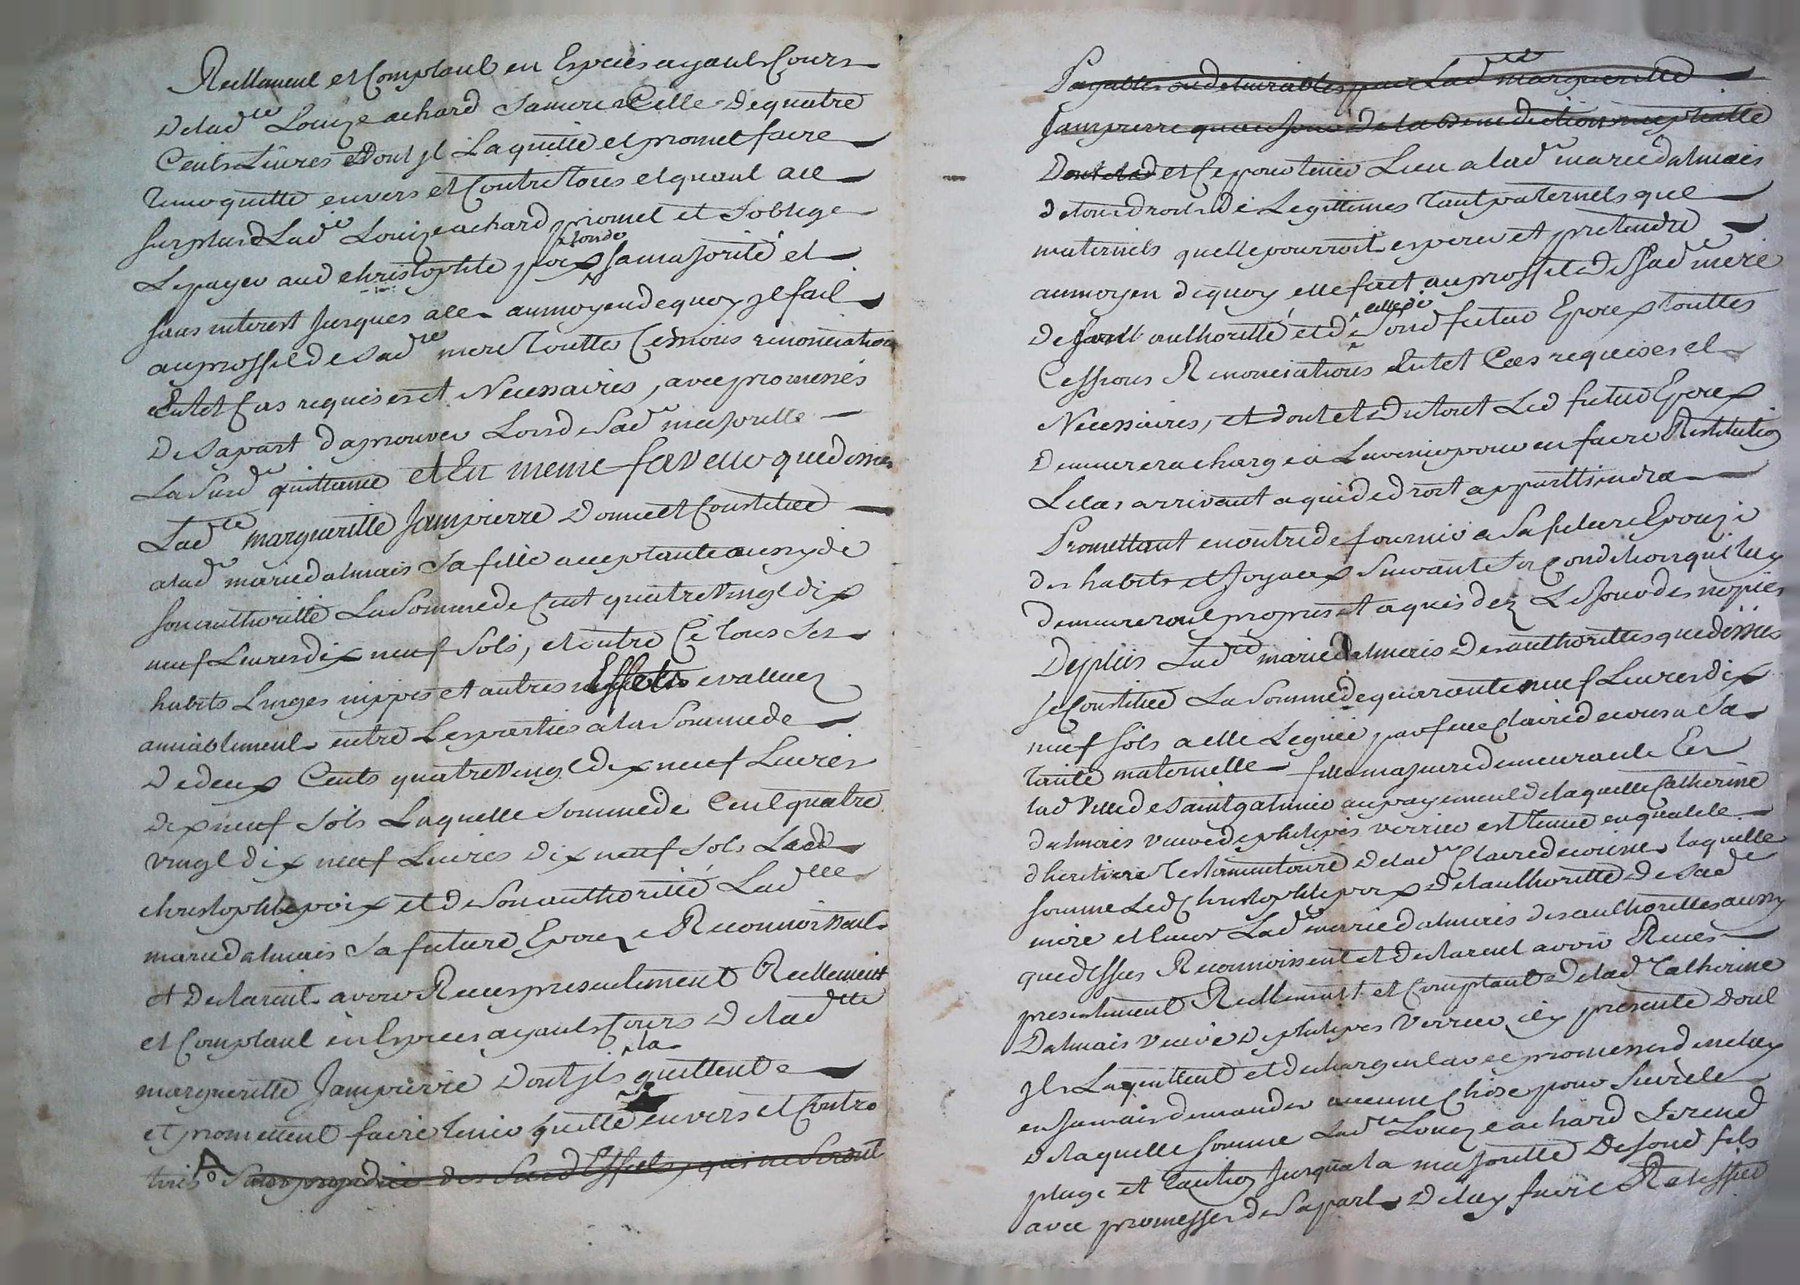 Reellement et Comptant en Espèces ayants Cours
De lad.te Louize achard Sa mere Celle de quatre
Cents Livres Dont jl La quitte et promet faire
tenir quitte envers et Contre tous et quant au
surplus Lad.te Louize achard promet et s'oblige
Le payer aud christophle poix sond. sa majorité et
sans interest jusques alle au moyen de quoy jl fait
au proffit de Sad.te mere touttes Cessions renonciations
En tel Cas requises et Necessaires, avec promesses
De sa part d'aprouver Lors de Sad.e majoritte
La Sud.e quittance et En meme faveur que dessus
Lad.te margueritte Jampierre Donne et Constitue
a lad.e marie dalmais Sa fille acceptante aussy de
son authoritté La Somme de Cent quatre Vingt dix
neuf Livres dix neuf Sols, et outre Ce tous Ses
habits Linges nippes et autres Effets evaluez
amiablement entre Les parties a la Somme de
De deux Cents quatre Vingt dix neuf Livres
dix neuf Sols Laquelle Somme de Cent quatre
vingt dix neuf Livres dix neuf Sols Led
christophle poix et de son authoritté Lad.lle
marie dalmais Sa future Epouze Reconnoissent
et Declarent avoir Reçues presentement Reellement
et Comptant en Espèces ayants Cours De lad.tte
margueritte Jampierre Dont jls la quittent
et promettent faire tenir quitte envers et Contre
tous A Sans prejudice des Susd Effets, qui ne Seront
Payables ou delivrables par Lad.tte margueritte
Jampierre qu'au jour De la Benediction nuptialle
Dont et Ce pour tenir Lieu a lad.e marie dalmais
de tous droits de Legittimes tant paternels que
maternels quelle pourroit esperer et pretendre
au moyen de quoy elle fait au proffit de Sad.e mere
De sad.tte authoritté et de celle de Sond futur Epoux touttes
Cessions Renonciations En tel Cas requises et
Necessaires, et dont et Du tout Led futur Epoux
Demeurera chargé a Lavenir pour en faire Restitution
Le Cas arrivant a qui de droit appartiendra
Promettant en outre de fournir a Sa future Epouze
des habits et Joyaux Suivant Sa Condition qui luy
demeureront propres et aquis dez Le jour des nopces
De plus Lad.te marie dalmais Des authorittes que dessus
Se Constitue La Somme de quarente neuf Livres dix
neuf Sols a elle Leguée par feue Claire decousu Sa
tante maternelle fille majeure demeurante En
lad Ville de Saint galmier au payement de laquelle Catherine
dalmais Veuve de philipes Verrier est tenue en qualité
d'heritiere Testamentaire De lad.e Claire decousu laquelle
somme Led Christophle poix De l'authoritté De Sad.e
mere et Encor Lad.e marie dalmais des authorittes aussy
que dessus Reconnoissent et declarent avoir Reçues
presentement Reellement et Comptant De lad.e Catherine
Dalmais Veuve De philipes Verrier icy presente Dont
jls La quittent et dechargent avec promesses de ne luy
en jamais demander aucune Chose pour Sureté
De laquelle Somme Lad.te Louize achard Se rend
plege et Caution jusqua la majoritté De Sond fils
avec promesses de Sa part De luy faire Ratiffier